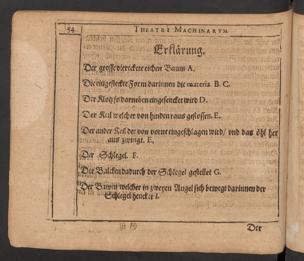 54 THEATRI MACHINARVM
Erklärung.
Der grosse viereckete eichen Baum A.
Die eingesteckte Form darinnen die materia B. C.
Der Klotz so darneben eingesencket wird D.
Der Keil welcher von hinden raus gestossen. E.
Der ander Keil der von vorne eingeschlagen wird / vnd das öhl her
aus zwingt. E.
Der Schlegel. F.
Der Balcken dadurch der Schlegel gestellet G.
Der Baum welcher in zweyen Angel sich bewegt darinnen der
Schlegel hencket I.
Der